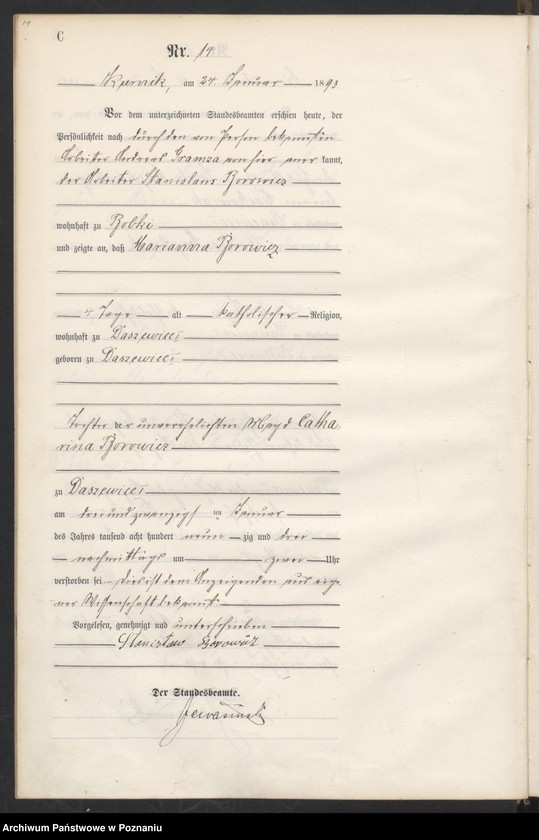 14
C
Nr. 14
Kurnik, am 24. Januar 1893
Vor dem unterzeichneten Standesbeamten erschien heute, der
Persönlichkeit nach durch den von Person bekannten
Arbeiter Andreas Gramza von hier aner kannt,
der Arbeiter Stanislaus Borowicz
wohnhaft zu
und zeigte an, daß Marianna Borowicz
4 Tage alt katholischer Religion,
wohnhaft zu Daszewicci
geboren zu Daszewicci
Tochter der unverehelichten Magd Catha
rina Borowicz
zu Daszewicci
am dreiundzwanzigsten Januar
des Jahres tausend acht hundert neun zig und drei
nachmittags um zwei Uhr
verstorben sei. dies ist dem Anzeigenden aus eige
ner Wissenschaft bekannt.
Vorgelesen, genehmigt und unterschrieben
Stanisław Borowicz
Der Standesbeamte.
Archiwum Państwowe w Poznaniu